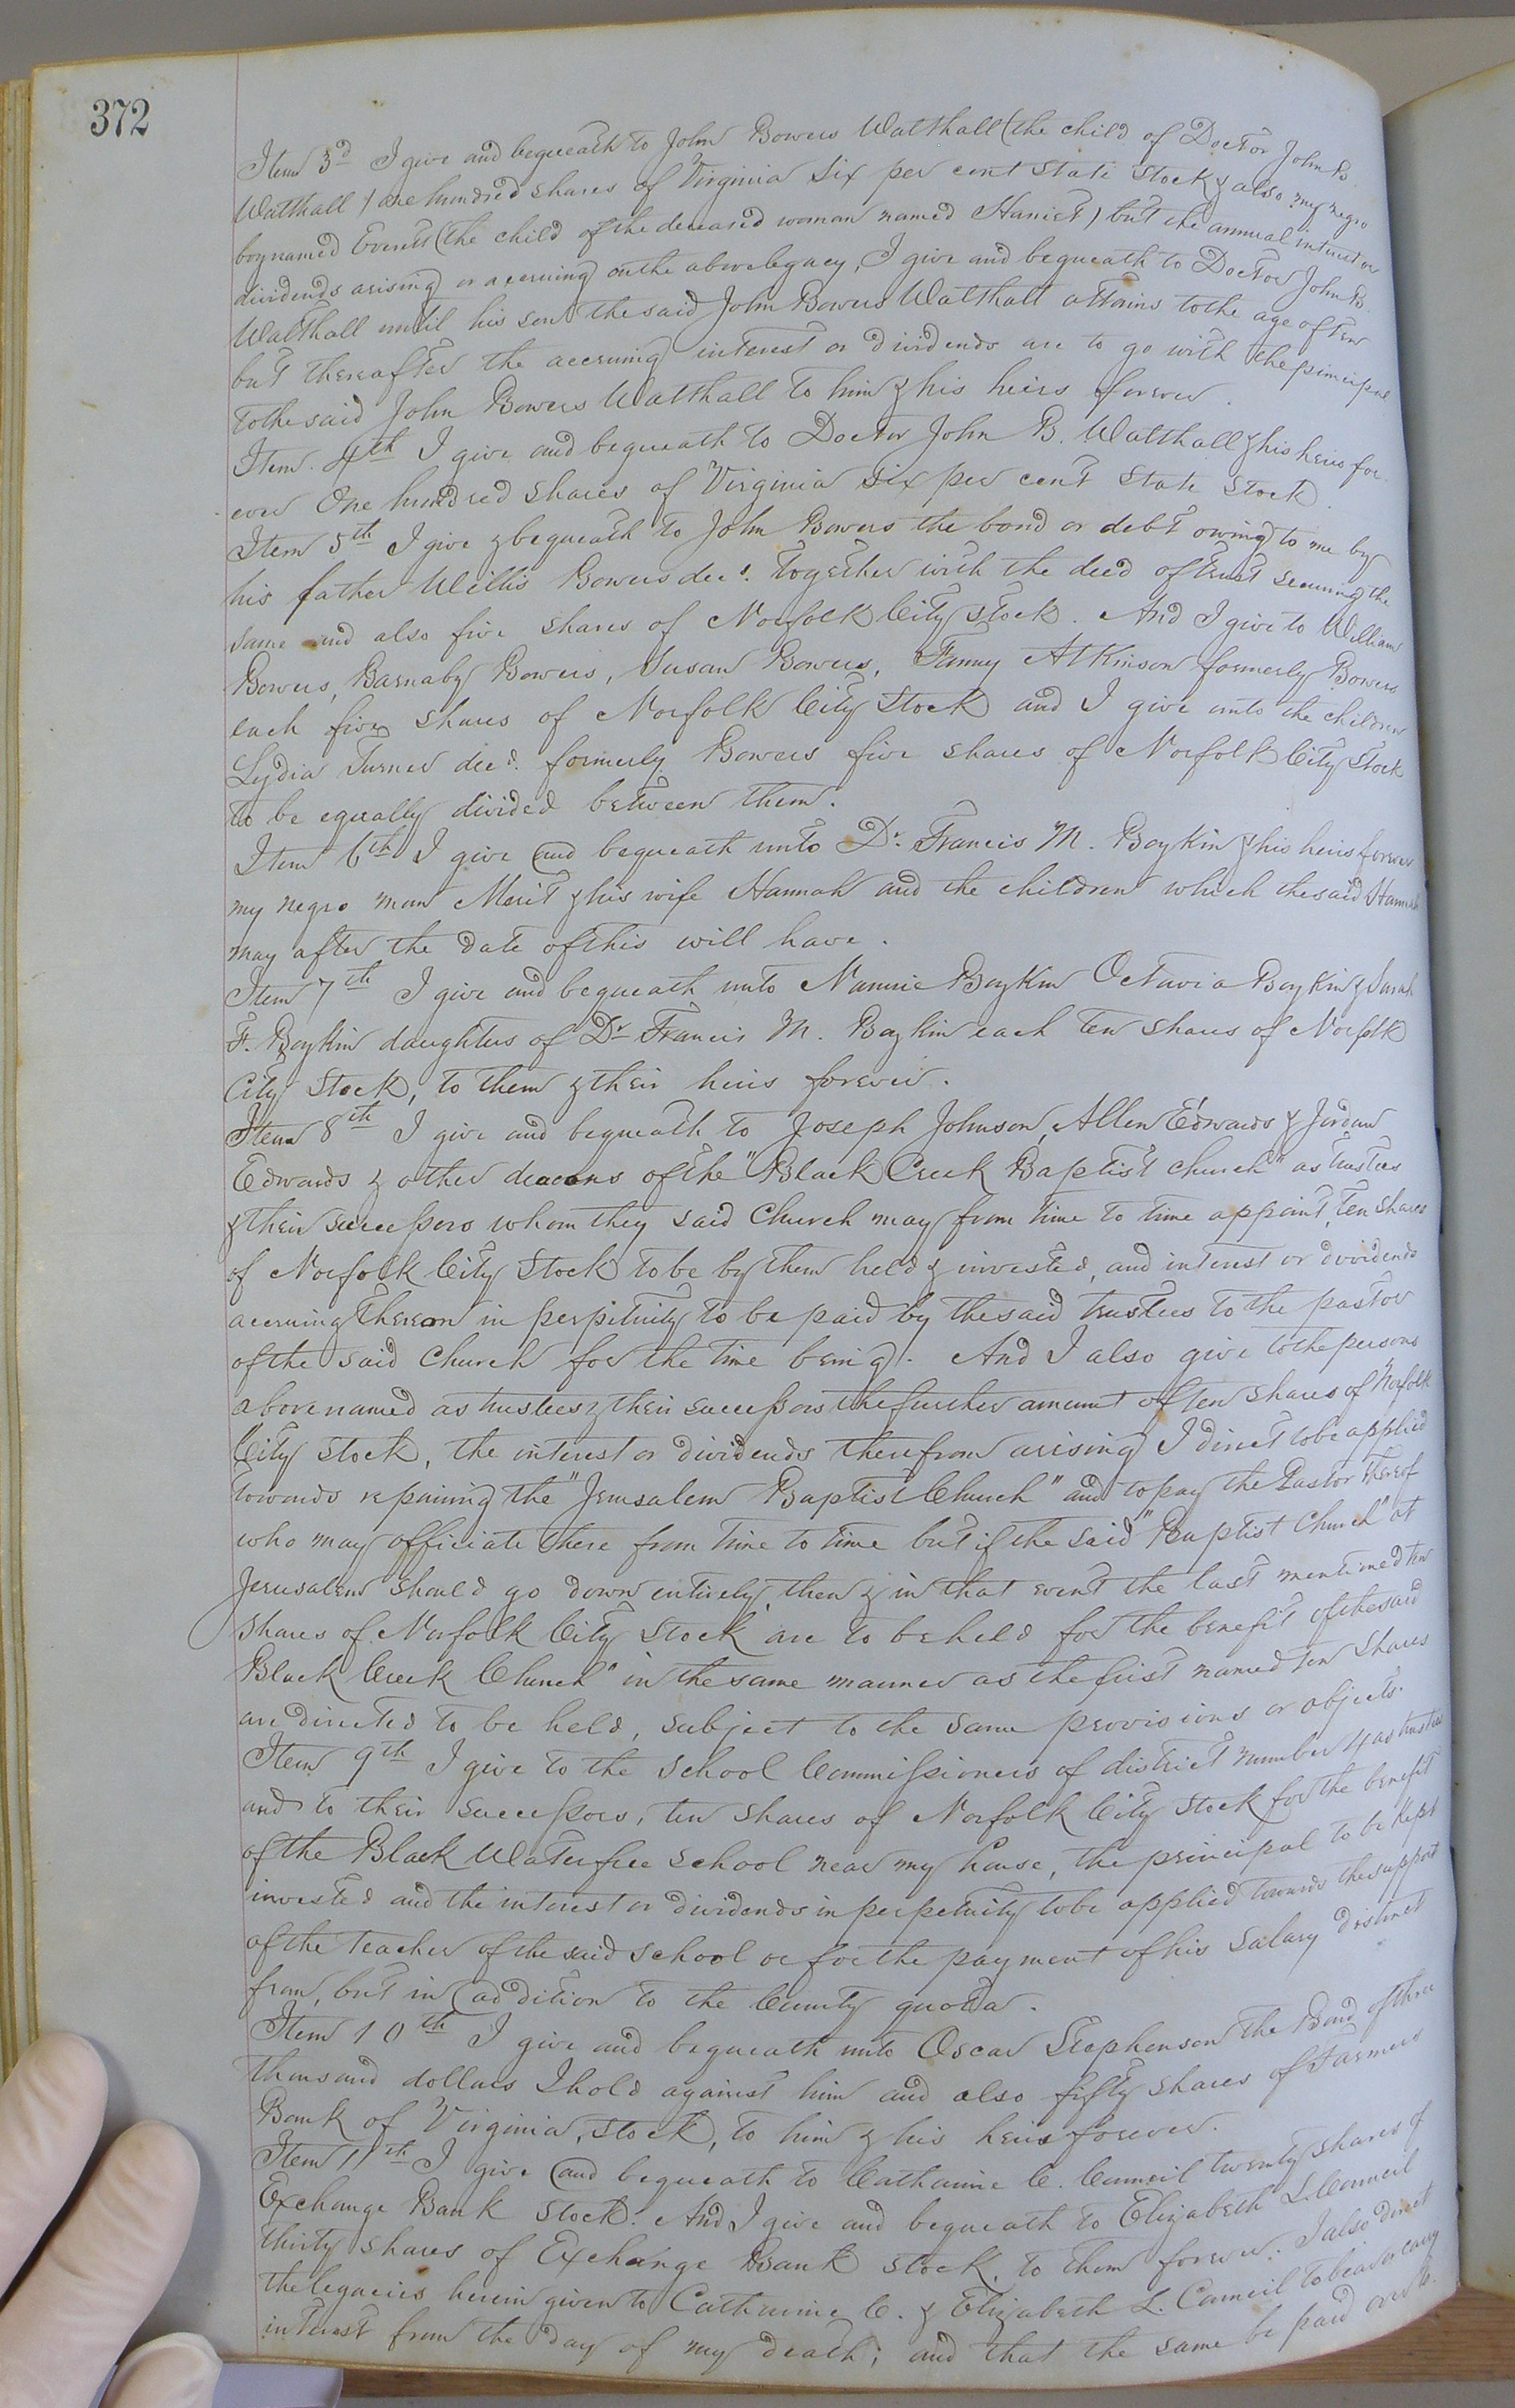 372
Item 3d I give and bequeath to John Bowers Walthall (the child of Doctor John B.
Walthall) one hundred shares of Virginia Six per cent State Stock & also my negro
boy named Everett (the child of the deceased woman named Harriet) but the annual interest or
dividends arising or accruing on the above legacy, I give and bequeath to Doctor John B.
Walthall until his son the said John Bowers Walthall attains to the age of ten
but thereafter the accruing interest or dividends are to go with the principal
to the said John Bowers Walthall to him & his heirs forever.
Item. 4th I give and bequeath to Doctor John B. Walthall & his heirs for
ever One hundred shares of Virginia six per cent State Stock.
Item 5th I give & bequeath to John Bowers the bond or debt owing to me by
his father Willis Bowers decd. together with the deed of trust securing the
same and also five shares of Norfolk City Stock. And I give to William
Bowers, Barnaby Bowers, Susan Bowers, Fanny Atkinson formerly Bowers
each five shares of Norfolk City Stock and I give unto the children
Lydia Turner decd. formerly Bowers five shares of Norfolk City Stock
to be equally divided between them.
Item 6th I give and bequeath unto Dr. Francis M. Boykin & his heirs forever
my negro man Merit & his wife Hannah and the children which the said Hannah
may after the date of this will have.
Item 7th I give and bequeath unto Nannie Boykin Octavia Boykin & Sarah
F. Boykin daughters of Dr Francis M. Boykin each ten shares of Norfolk
City Stock, to them & their heirs forever.
Item 8th I give and bequeath to Joseph Johnson, Allen Edwards & Jordan
Edwards & other deacons of the "Black Creek Baptist church" as trustees
& their successors whom they said Church may from time to time appoint, ten shares
of Norfolk City Stock to be by them held & invested, and interest or dividends
accruing thereon in perpituity to be paid by the said trustees to the pastor
of the said Church for the time being. And I also give to the persons
above named as trustees & their successors the further amount of ten shares of Norfolk
City Stock, the interest or dividends therefrom arising I direct to be applied
towards repairing the "Jerusalem Baptist Church" and to pay the Pastor thereof
who may officiate there from time to time but if the said "Baptist Church" at
Jerusalem should go down entirely, then & in that event the last mentioned ten
shares of Norfolk City Stock are to be held for the benefit of the said
Black Creek Church" in the same manner as the first named ten Shares
are directed to be held, subject to the same provisions or objects.
Item 9th I give to the School Commissioners of district number 4 as trustees
and to their successors, ten shares of Norfolk City Stock for the benefit
of the Black Water free School near my house, the principal to be kept
invested and the interest or dividends in perpetuity to be applied towards the support
of the teacher of the said school or for the payment of his Salary distinct
from, but in addition to the County quota.
Item 10th I give and bequeath unto Oscar Stephenson the Bond of three
thousand dollars I hold against him and also fifty shares of Farmers
Bank of Virginia, Stock, to him & his heirs forever.
Item 11th I give and bequeath to Catharine C. Council twenty shares of
Exchange Bank Stock. And I give and bequeath to Elizabeth L. Council
thirty shares of Exchange Bank Stock, to them forever. I also direct
the legacies herein given to Catharine C. & Elizabeth L. Council to bear or carry
interest from the day of my death; and that the same be paid over to